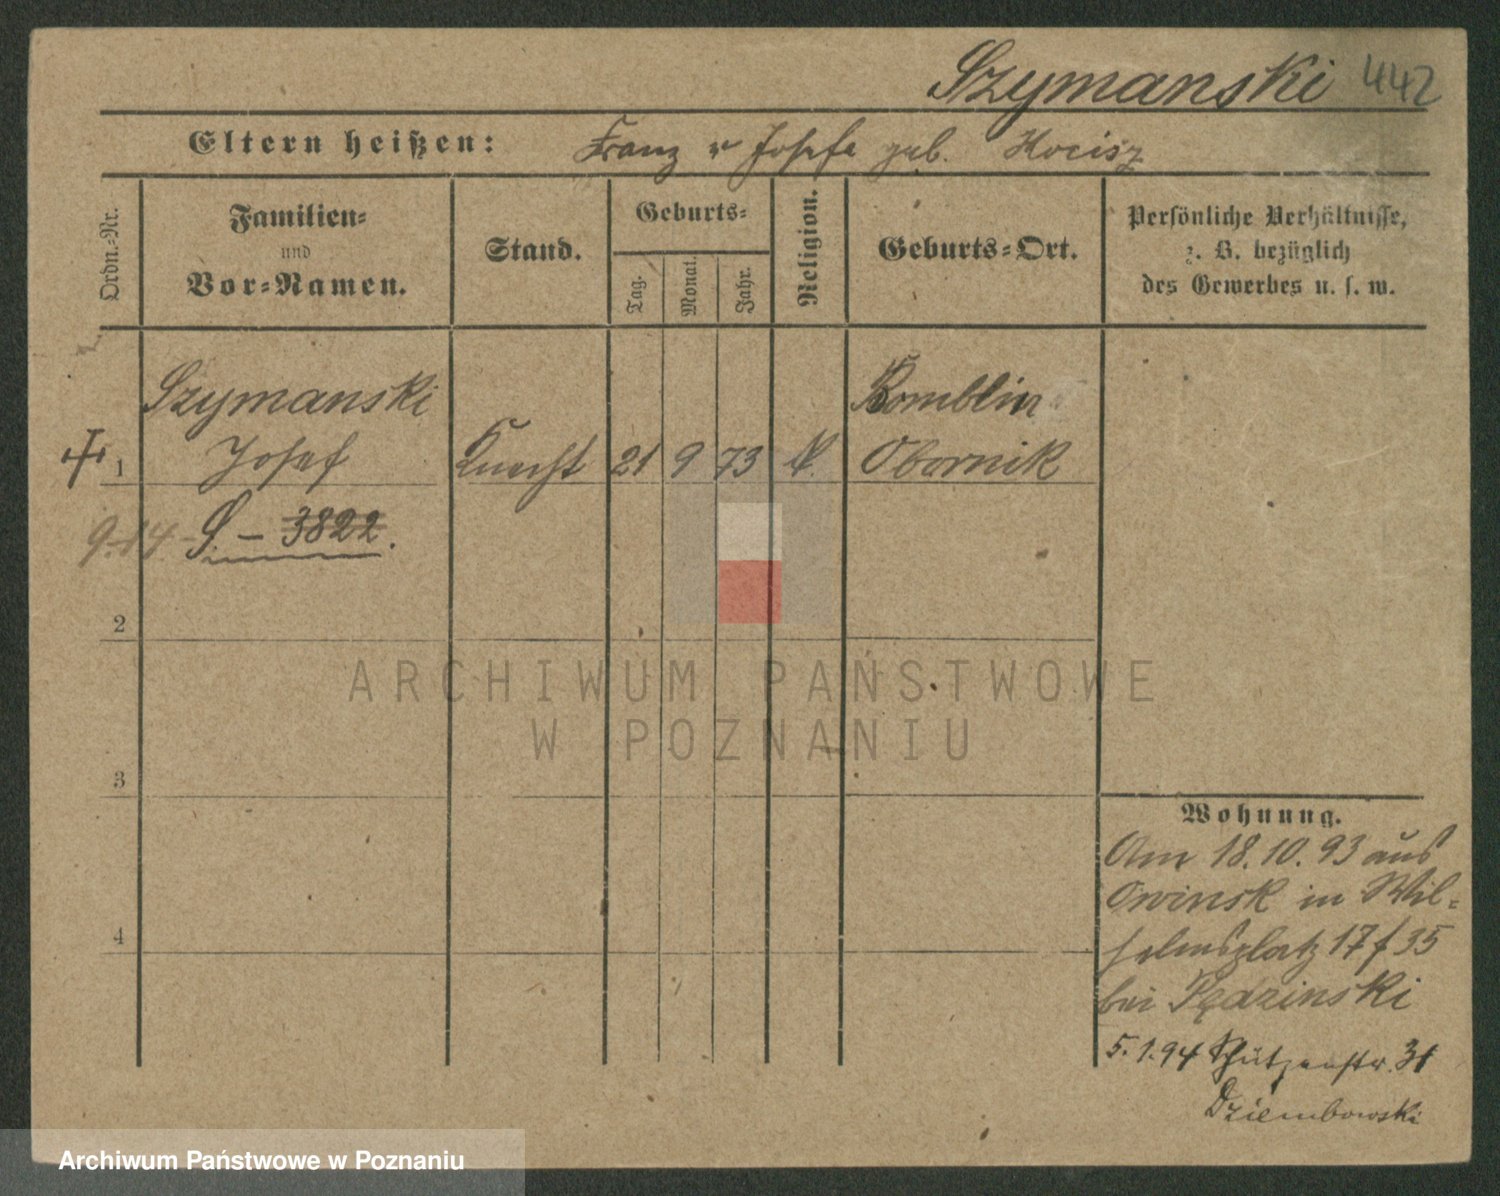 Szymanski 442
Eltern heißen: Franz u Josefa geb. Hocisz
Ordn.-Nr.
Familien-
und
Vor-Namen.
Stand.
Geburts-
Tag.
Monat.
Jahr.
Religion.
Geburts-Ort.
Persönliche Verhältnisse,
z. B. bezüglich
des Gewerbes u. s. w.
Szymanski Bomblin
1 Josef Knecht 21 9 73 k. Obornik
9.14 S – 3822.
2
3
4
Wohnung.
Am 18.10.93 aus
Owinsk in Wil-
helmsplatz 17 f 35
bei Pędzinski
5.1.94 Schützenstr. 31
Dziembowski
ARCHIWUM PAŃSTWOWE
W POZNANIU
Archiwum Państwowe w Poznaniu